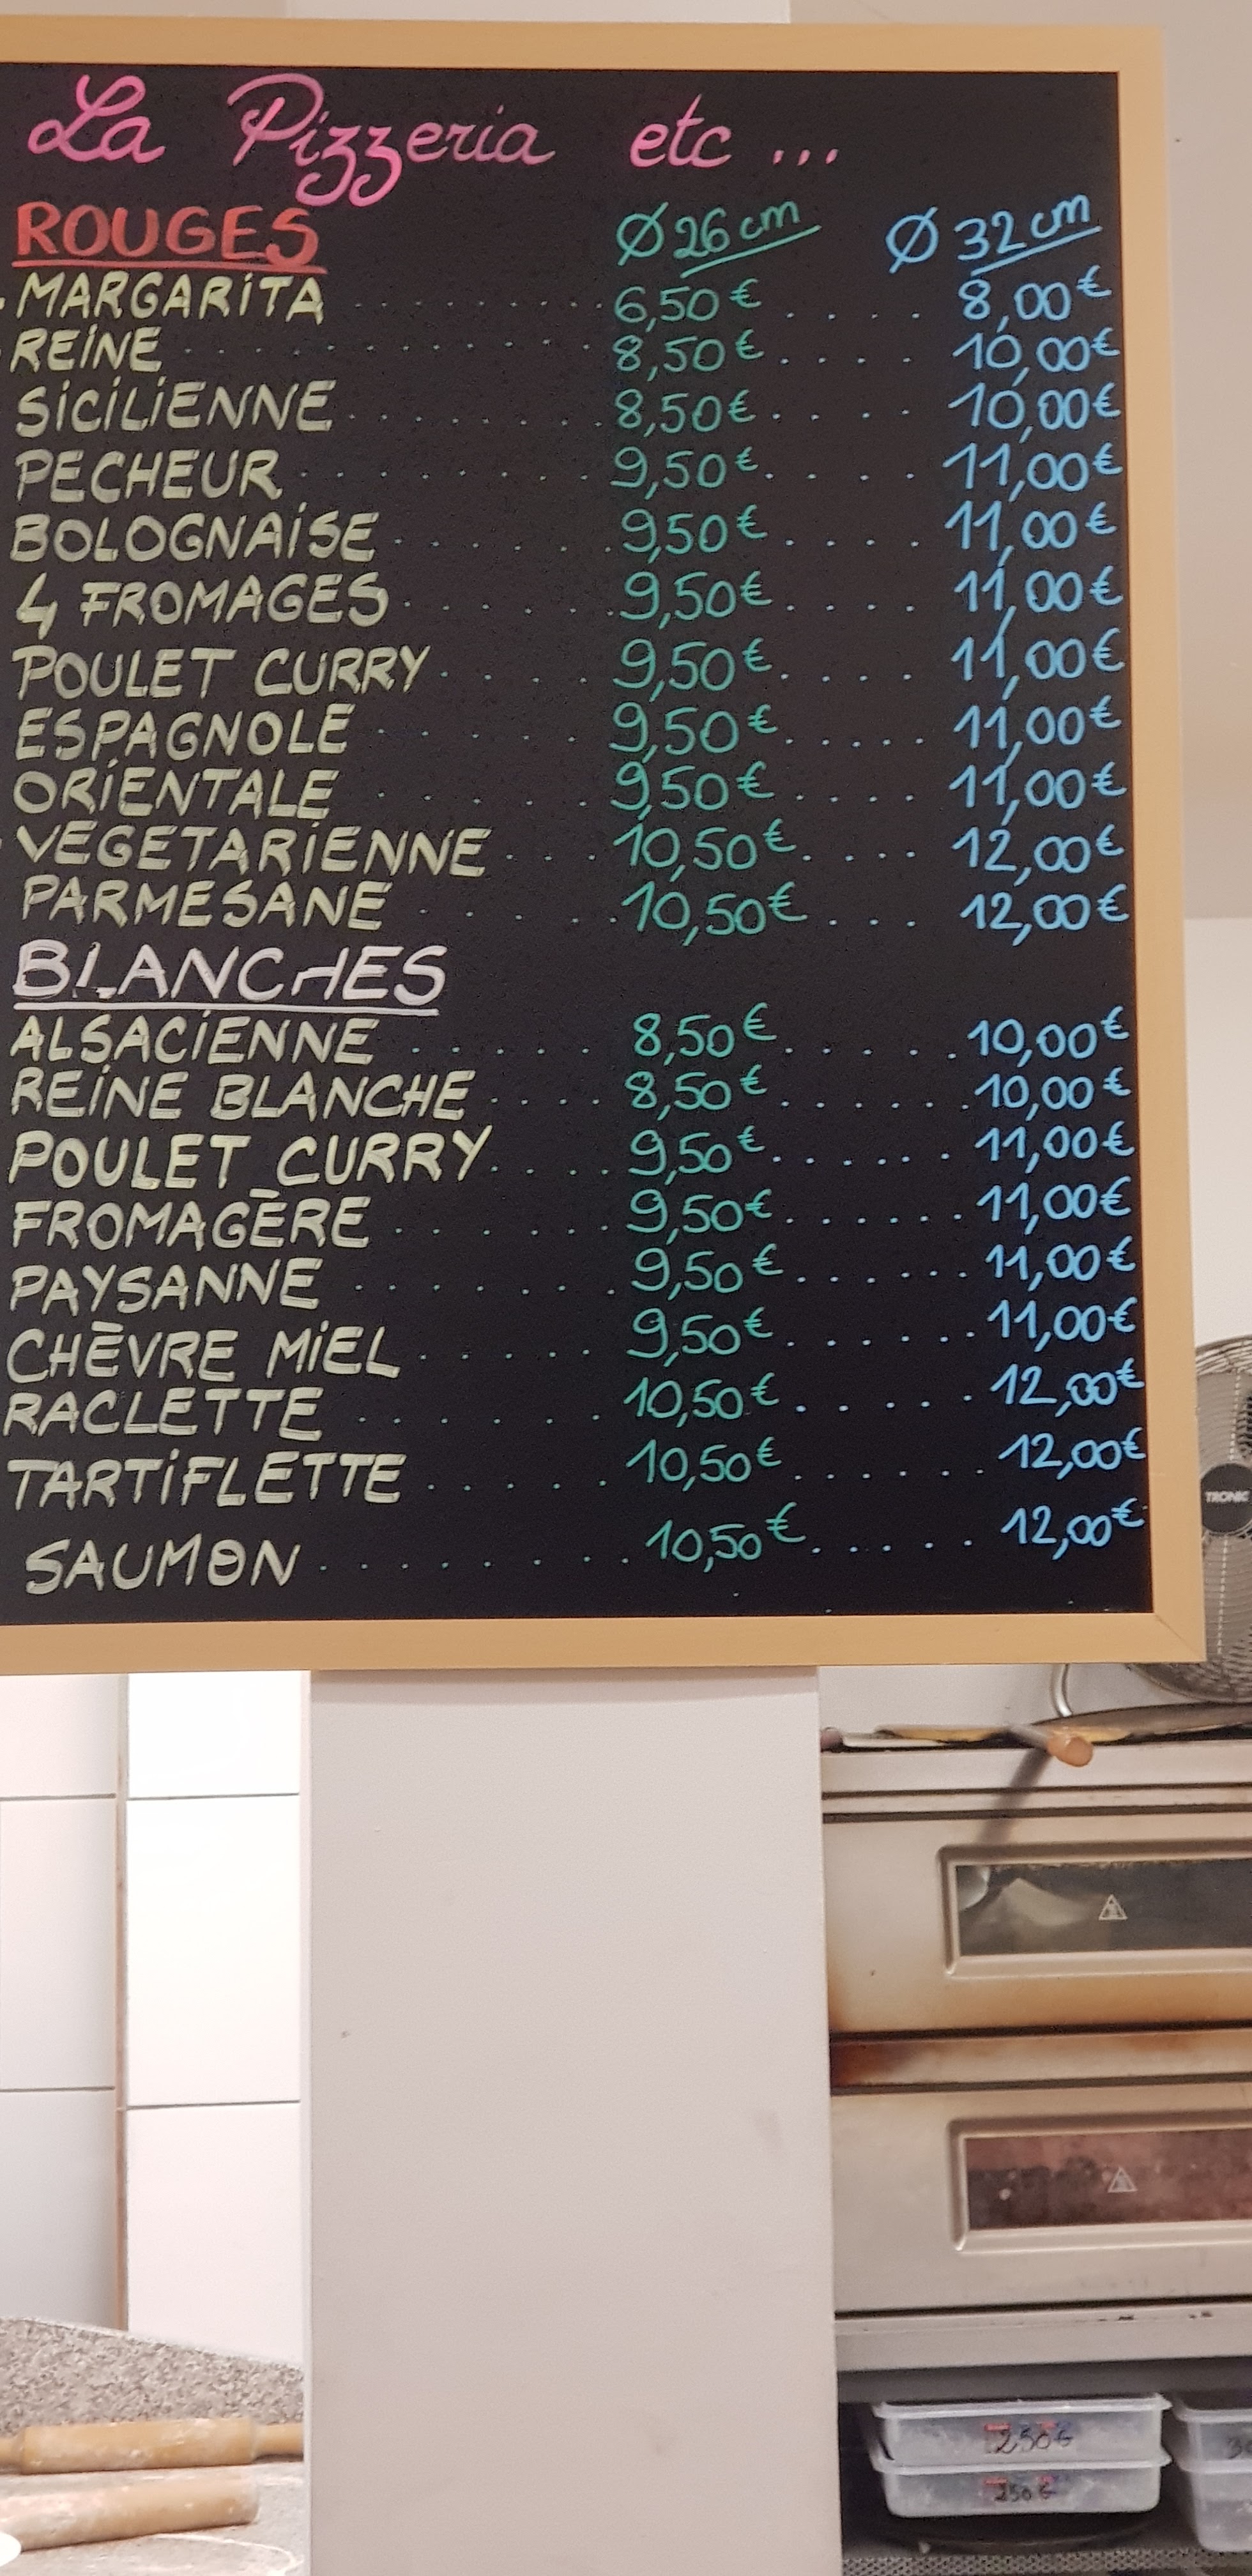 La Pizzeria etc ...
ROUGES Ø 26 cm Ø 32 cm
MARGARITA 6,50€ 8,00€
REINE 8,50€ 10,00€
SICILIENNE 8,50€ 10,00€
PECHEUR 9,50€ 11,00€
BOLOGNAISE 9,50€ 11,00€
4 FROMAGES 9,50€ 11,00€
POULET CURRY 9,50€ 11,00€
ESPAGNOLE 9,50€ 11,00€
ORIENTALE 9,50€ 11,00€
VEGETARIENNE 10,50€ 12,00€
PARMESANE 10,50€ 12,00€
BLANCHES
ALSACIENNE 8,50€ 10,00€
REINE BLANCHE 8,50€ 10,00€
POULET CURRY 9,50€ 11,00€
FROMAGÈRE 9,50€ 11,00€
PAYSANNE 9,50€ 11,00€
CHÈVRE MIEL 9,50€ 11,00€
RACLETTE 10,50€ 12,00€
TARTIFLETTE 10,50€ 12,00€
SAUMON 10,50€ 12,00€
TRONIC
250G
250G